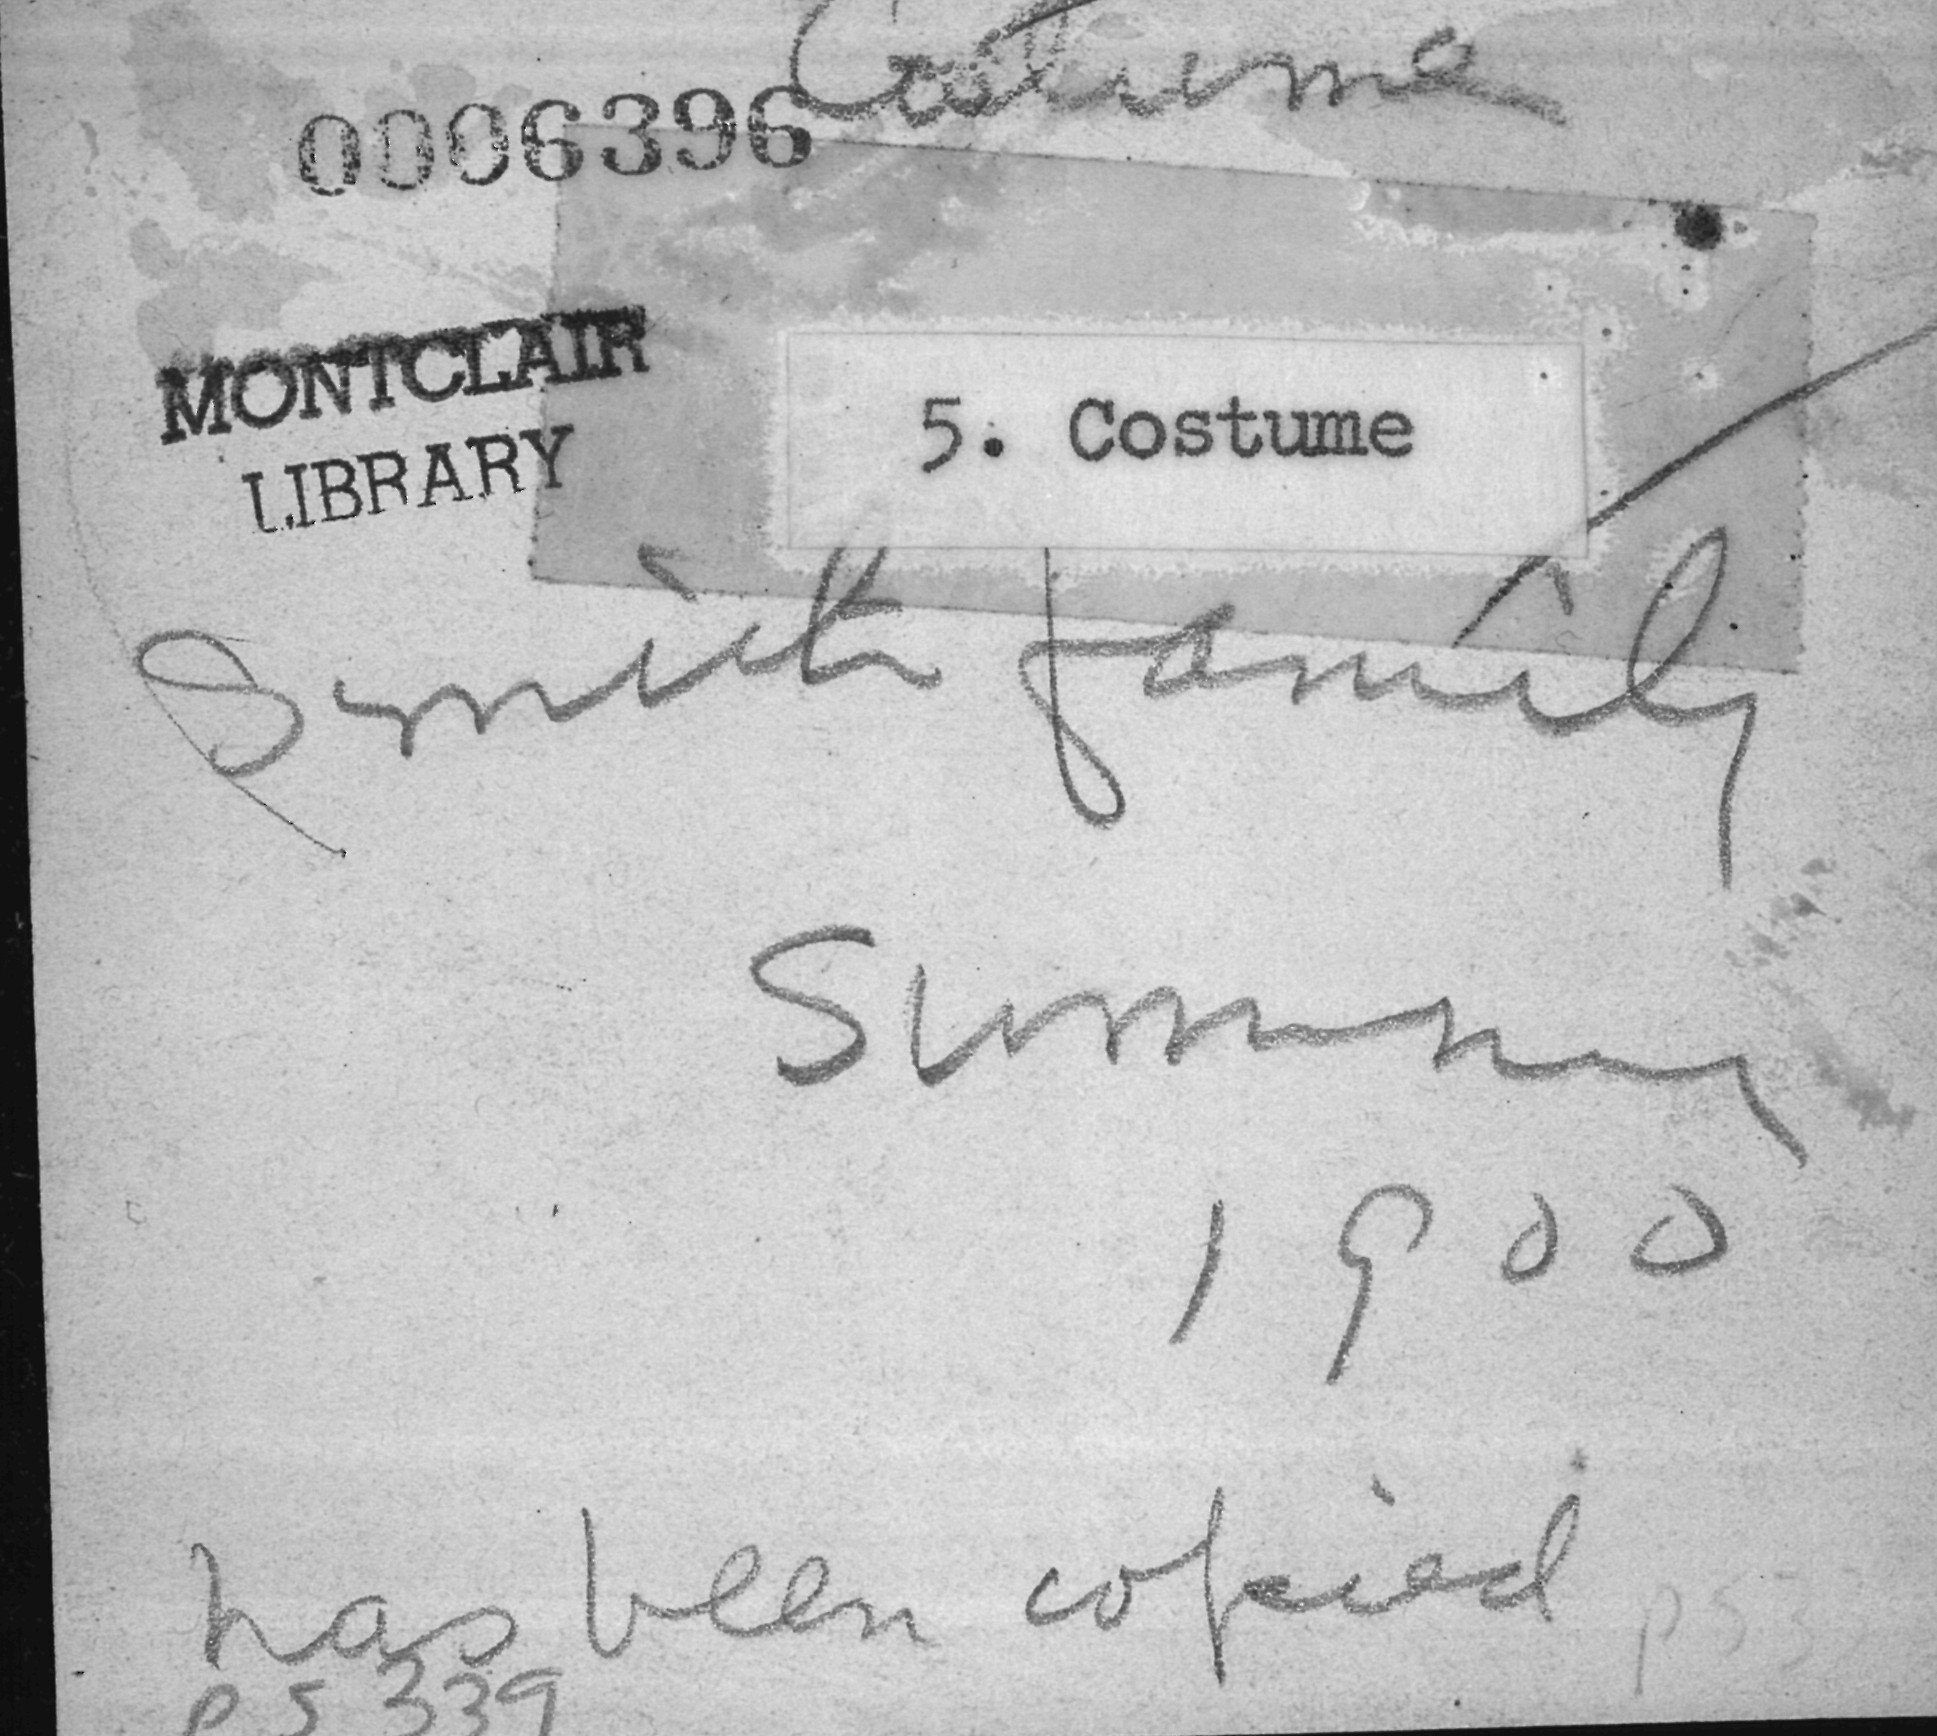 Costume
0006396
MONTCLAIR
LIBRARY
5. Costume
Smith family
Summer
1900
has been copied
PS 339